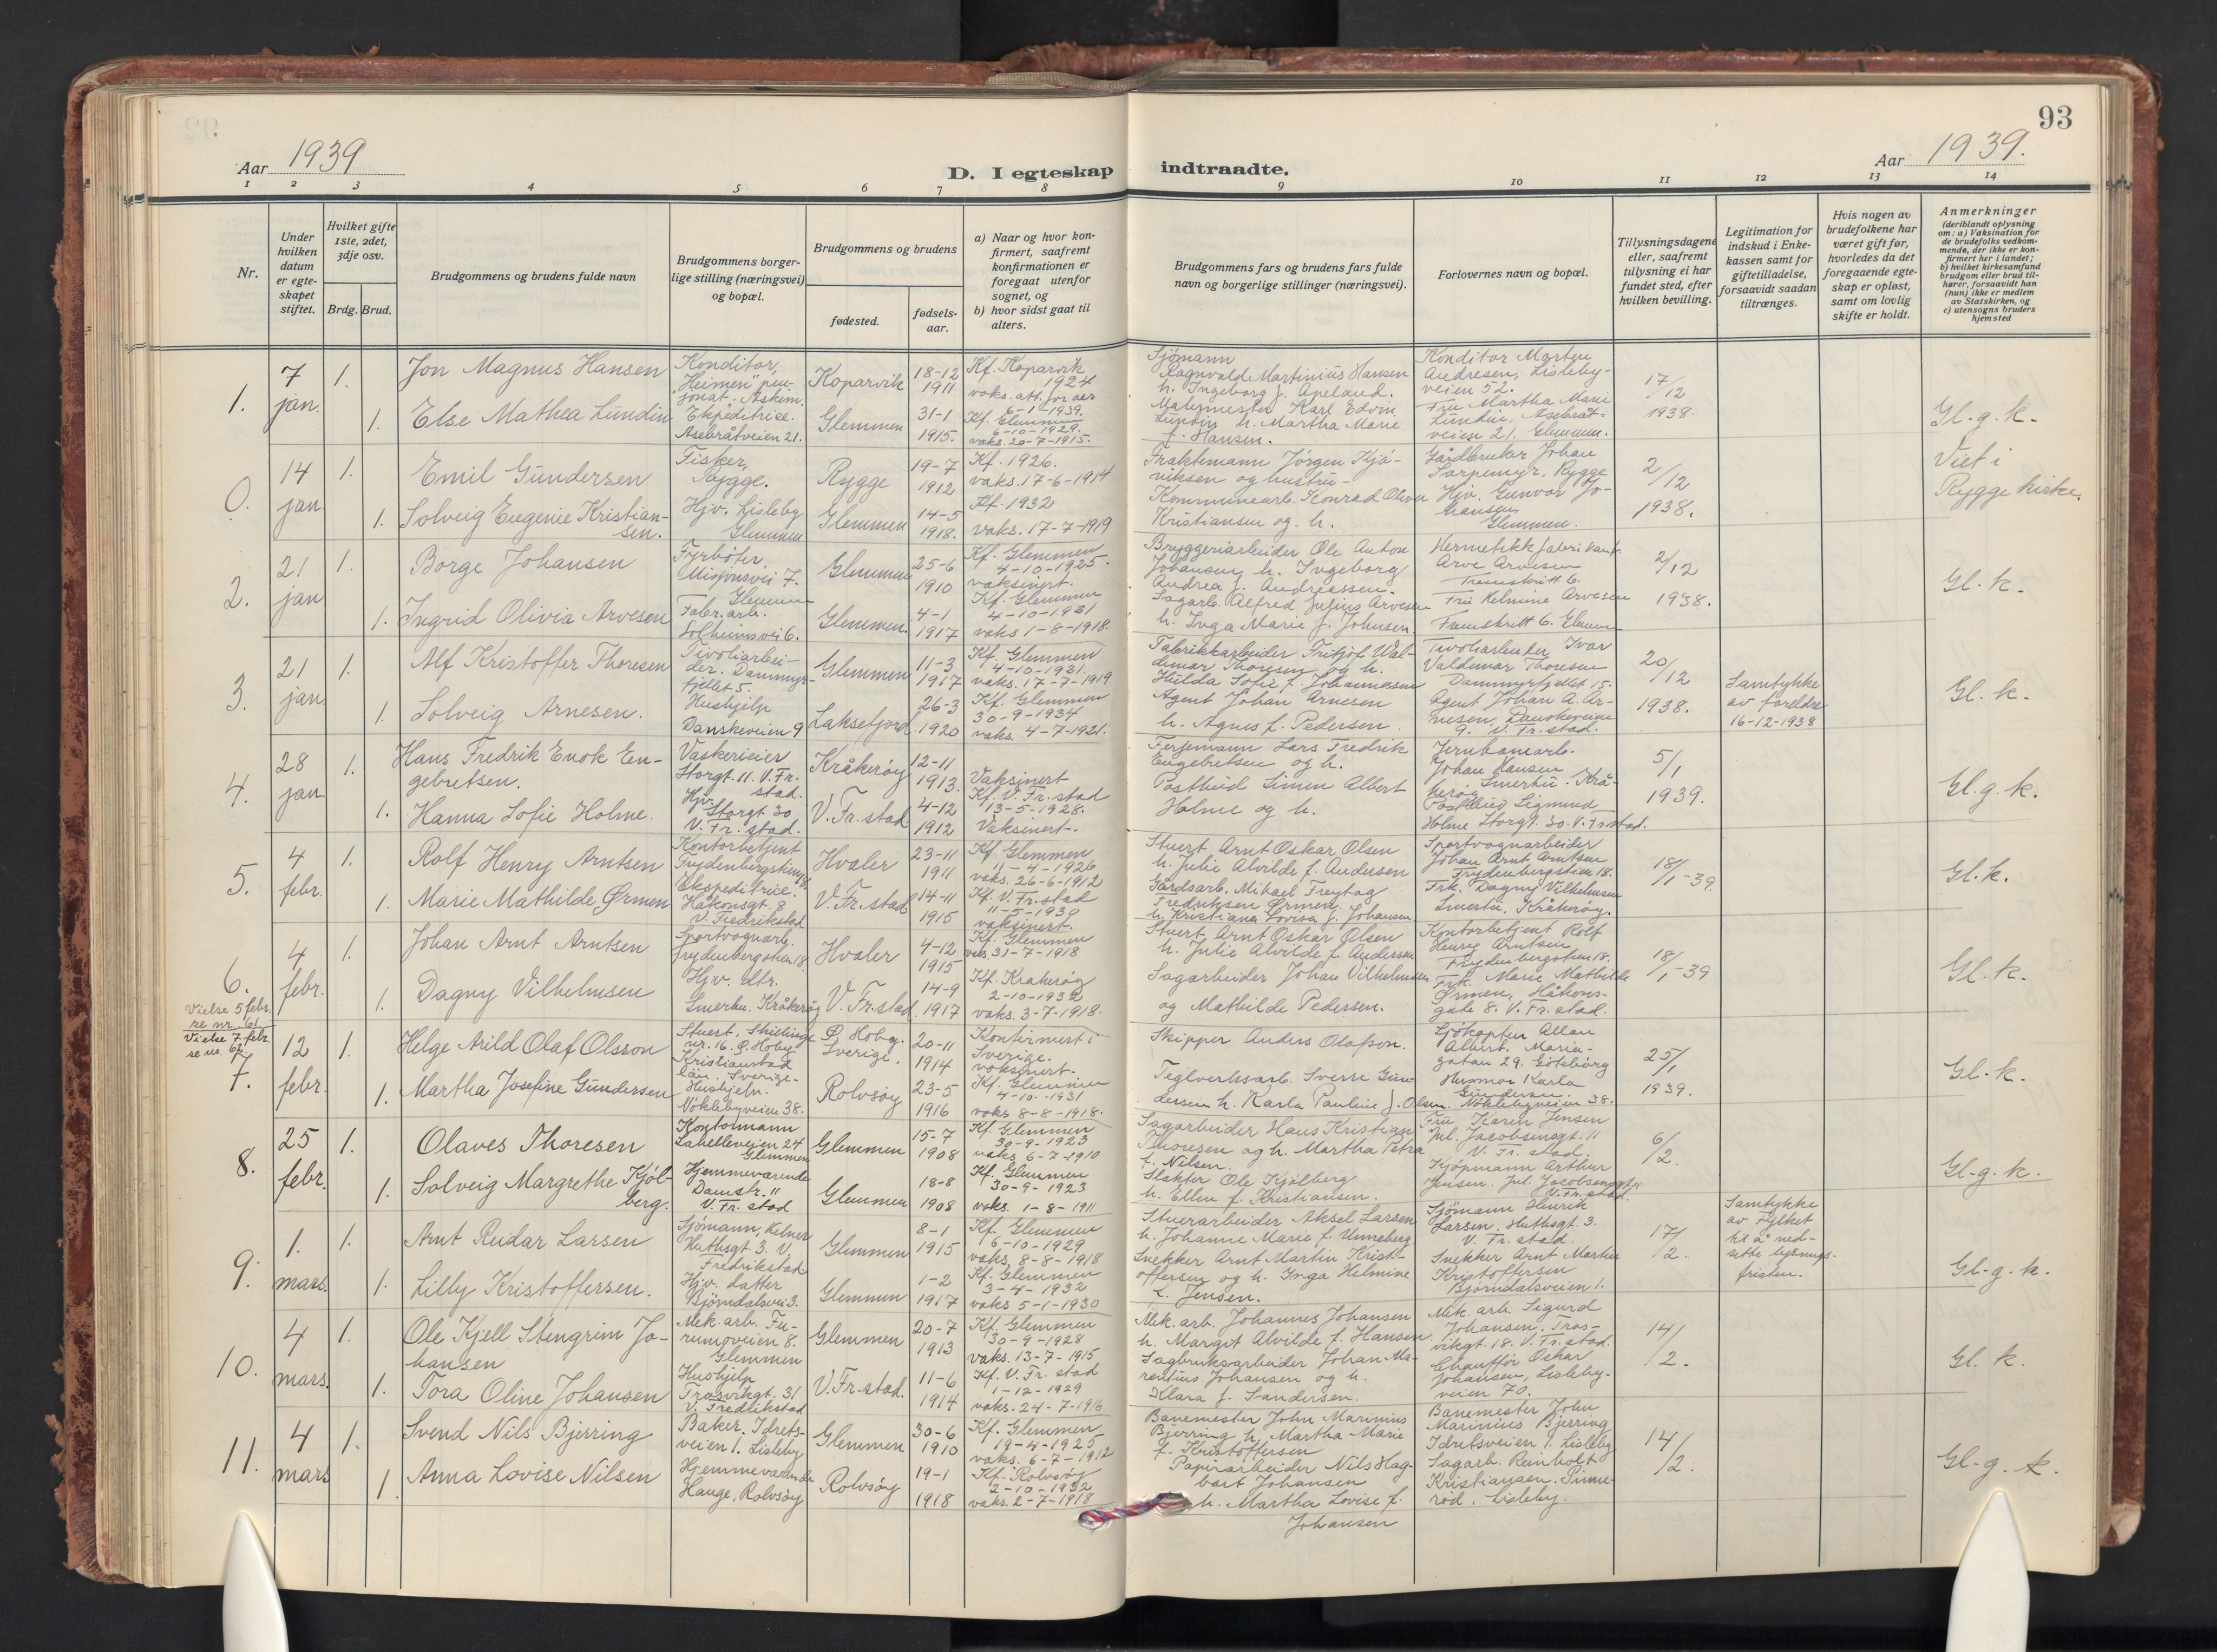 93
Aar 1939
Aar 1939.
D. I egteskap indtraadte.
1 2 3 4 5 6 7 8 9 10 11 12 13 14
Nr.
Under hvilken datum er egteskapet stiftet.
Hvilket gifte 1ste, 2det, 3dje osv.
Brdg. Brud.
Brudgommens og brudens fulde navn
Brudgommens borgerlige stilling (næringsvei) og bopæl.
Brudgommens og brudens
fødested.
fødselsaar.
a) Naar og hvor konfirmert, saafremt konfirmationen er foregaat utenfor sognet, og
b) hvor sidst gaat til alters.
Brudgommens fars og brudens fars fulde navn og borgerlige stillinger (næringsvei).
Forlovernes navn og bopæl.
Tillysningsdagene eller, saafremt tillysning ei har fundet sted, efter hvilken bevilling.
Legitimation for indskud i Enkekassen samt for giftetilladelse, forsaavidt saadan tiltrænges.
Hvis nogen av brudefolkene har været gift før, hvorledes da det foregaaende egteskap er opløst, samt om lovlig skifte er holdt.
Anmerkninger
(deriblandt oplysning om: a) Vaksination for de brudefolks vedkommende, der ikke er konfirmert her i landet;
b) hvilket kirkesamfund brudgom eller brud tilhører, forsaavidt han (hun) ikke er medlem av Statskirken, og
c) utensogns bruders hjemsted
1.
7 jan.
1.
Jon Magnus Hansen
Konditor, "Heimen" pensjonat. Askim.
Koparvik
18-12 1911
Kf. Koparvik 1924
vaks. att. for aar 6-1-1939.
Sjømann Ragnvald Martinius Hansen h. Ingeborg f. Apeland.
Konditor Morten Andresen, Lislebyveien 52.
17/12 1938.
Gl.g.k.
1.
Else Mathea Lundin
Ekspeditrice. Åsebråtveien 21.
Glemmen
31-1 1915.
Kf. Glemmen 6-10-1929.
vaks. 20-7-1915.
Malermester Karl Edvin Lundin h. Martha Marie f. Hansen.
Fru Martha Marie Lundin, Åsebråtveien 21. Glemmen.
0.
14 jan
1.
Emil Gundersen
Fisker, Rygge.
Rygge
19-7 1912
Kf. 1926.
vaks. 17-6-1914
Fraktemann Jørgen Kjøniksen og hustru
Gårdbruker Johan Sarpemyr, Rygge
2/12 1938.
Viet i Rygge kirke.
1.
Solveig Eugenie Kristiansen.
Hjv. Lisleby Glemmen
Glemmen
14-5 1918.
Kf. 1932
vaks. 17-7-1919
Kommunearb. Konrad Oliver Kristiansen og h.
Hjv. Gunvor Johansen Glemmen.
2.
21 jan
1.
Borge Johansen
Fyrbøter, Misjonsvei 7. Glemmen
Glemmen
25-6 1910
Kf. Glemmen 4-10-1925.
vaksinert.
Bryggeriarbeider Ole Anton Johansen h. Ingeborg Andrea f. Andreassen.
Hermetikkfabrikant Arve Arvesen Framskritt 6.
2/12 1938.
Gl.k.
1.
Ingrid Olivia Arvesen
Fabr.arb. Solheimsvei 6.
Glemmen.
4-1 1917
Kf. Glemmen 4-10-1931
vaks 1-8-1918.
Sagarb. Alfred Julius Arvesen h. Inga Marie f. Johnsen.
Fru Helmine Arvesen Framskritt 6. Glemmen
3.
21 jan
1.
Alf Kristoffer Thoresen
Tivoliarbeider. Dammyrfjellet 5.
Glemmen
11-3 1917
Kf. Glemmen 4-10-1931.
vaks. 17-7-1919
Fabrikkarbeider Fritjof Waldemar Thoresen og h. Hulda Sofie f. Johannessen
Tivoliarbeider Ivar Valdemar Thoresen Dammyrfjellet 15.
20/12 1938.
Samtykke av foreldre 16-12-1938
Gl.k.
1.
Solveig Arnesen.
Hushjelp Danskeveien 9
Laksefjord.
26-3 1920
Kf. Glemmen 30-9-1934
vaks. 4-7-1921.
Agent Johan Arnesen h. Agnes f. Pedersen.
Agent Johan A. Arnesen, Danskeveien 9. V. Fr.stad.
4.
28 jan
1.
Hans Fredrik Enok Engebretsen.
Vaskerieier Storgt. 11. V. Fr.stad.
Kråkerøy
12-11 1913.
Vaksinert
Ferjemann Lars Fredrik Engebretsen og h.
Jernbanearb. Johan Hansen Smertu. Kråkerøy
5/1 1939.
Gl.g.k.
1.
Hanna Sofie Holme.
Hjv. Storgt 30 V. Fr. stad.
V. Fr. stad
4-12 1912
Kf. V. Fr. stad 13-5-1928.
Vaksinert.
Postbud Simen Albert Holme og h.
Postbud Sigmund Holme Storgt. 30. V. Fr.stad.
5.
4 febr.
1.
Rolf Henry Arntsen
Kontorbetjent Frydenbergstien 18.
Hvaler
23-11 1911
Kf. Glemmen 11-4-1926
vaks. 26-6-1912
Stuert Arnt Oskar Olsen h. Julie Alvilde f. Andersen
Sportvognarbeider Johan Arnt Arntsen Frydenbergstien 18.
18/1-39.
Gl.k.
1.
Marie Mathilde Ørmen
Ekspeditrice. Håkonsgt. 8 V. Fredrikstad
V. Fr.stad
14-11 1915
Kf. V. Fr. stad 11-5-1930
vaksinert.
Gårdsarb. Mikael Freytag Fredriksen Ørmen h. Kristiana Lovisa f. Johansen
Frk. Dagny Vilhelmsen Smertu. Kråkerøy.
6.
4 febr.
1.
Johan Arnt Arntsen
Sportvognarb. Frydenbergstien 18.
Hvaler
4-12 1915
Kf. Glemmen
vaks. 31-7-1918
Stuert Arnt Oskar Olsen h. Julie Alvilde f. Andersen
Kontorbetjent Rolf Henry Arntsen Frydenbergstien 18.
18/1-39
Gl.k.
1.
Dagny Vilhelmsen
Hjv. dtr. Smertu. Kråkerøy
V. Fr.stad
14-9 1917
Kf. Kråkerøy 2-10-1932
vaks. 3-7-1918.
Sagarbeider Johan Vilhelmsen og Mathilde Pedersen.
Frk. Marie Mathilde Ørmen, Håkonsgate 8. V. Fr. stad.
Vielse 5 febr. se nr. 61.
Vielse 7. febr. se nr. 62.
7.
12 febr.
1.
Helge Arild Olaf Olsson
Stuert, Skillinge nr. 16. Ø. Hoby Kristianstad län. Sverige.
Ø. Hoby. Sverige.
20-11 1914
Konfirmert i Sverige.
vaksinert.
Skipper Anders Olafson.
Sjökapten Allan Albert. Mariagatan 29. Göteborg
25/1 1939.
Gl.k.
1.
Martha Josefine Gundersen
Hushjelp. Nøklebyveien 38.
Rolvsøy
23-5 1916
Kf. Glemmen 4-10-1931
vaks 8-8-1918.
Teglverksarb. Sverre Gundersen h. Karla Pauline f. Olsen.
Husmor Karla Gundersen. Nøklebyveien 38.
8.
25 febr.
1.
Olaves Thoresen
Kontormann Labelleveien 24 Glemmen
Glemmen
15-7 1908
Kf. Glemmen 30-9-1923
vaks 6-7-1910
Sagarbeider Hans Kristian Thoresen og h. Martha Petra f. Nilsen.
Fru Karen Jensen Jul. Jacobsensgt. 11 V. Fr. stad.
6/2.
Gl.g.k.
1.
Solveig Margrethe Kjølberg.
Hjemmeværende Damstr. 11 V. Fr. stad
Glemmen
18-8 1908
Kf. Glemmen 30-9-1923
vaks. 1-8-1911
Slakter Ole Kjølberg h. Ellen f. Kristiansen.
Kjøpmann Arthur Jensen. Jul. Jacobsensgt 11 V. Fr. stad.
9.
1. mars.
1.
Arnt Reidar Larsen
Sjømann, Kelner Huthsgt 3. V. Fredrikstad
Glemmen
8-1 1915
Kf. Glemmen 6-10-1929
vaks. 8-8-1918
Stuerarbeider Aksel Larsen h. Johanne Marie f. Unneberg
Sjømann Henrik Larsen. Huthsgt. 3. V. Fr. stad.
17/2.
Samtykke av Fylket til å nedsette lysningsfristen.
Gl.g.k.
1.
Lilly Kristoffersen.
Hjv. datter Bjørndalsvei 3.
Glemmen
1-2 1917
Kf. Glemmen 3-4-1932
vaks 5-1-1930
Snekker Arnt Martin Kristoffersen og h. Inga Helmine f. Jensen.
Snekker Arnt Martin Kristoffersen Bjørndalsveien 1.
10.
4 mars.
1.
Ole Kjell Stengrim Johansen
Mek. arb. Furumoveien 8. Glemmen
Glemmen
20-7 1913
Kf. Glemmen 30-9-1928
vaks. 13-7-1915
Mek. arb. Johannes Johansen h. Margit Alvilde f. Hansen.
Mek. arb. Sigurd Johansen, Trosvikgt. 18. V. Fr. stad.
14/2.
Gl. k.
1.
Tora Oline Johansen
Hushjelp Trosvikgt. 31 V. Fredrikstad
V. Fr. stad.
11-6 1914
Kf. V. Fr. stad 1-12-1929
vaks. 24-7-1916
Sagbruksarbeider Johan Marentius Johansen og h. Klara f. Sandersen.
Chauffør Oskar Johansen, Lislebyveien 70.
11.
4 mars
1.
Svend Nils Bjerring
Baker. Idrettsveien 1. Lisleby
Glemmen
30-6 1910
Kf. Glemmen 19-4-1925
vaks. 6-7-1912
Banemester John Marinius Bjerring h. Martha Marie f. Kristoffersen
Banemester John Marinius Bjerring Idretsveien 1. Lisleby
14/2.
Gl.g.k.
1.
Anna Lovise Nilsen
Hjemmeværende Hauge, Rolvsøy
Rolvsøy
19-1 1918
Kf. Rolvsøy 2-10-1932
vaks. 2-7-1918
Papirarbeider Nils Hagbart Johansen h. Martha Lovise f. Johansen
Sagarb. Reinholt Kristiansen. Pinnerød. Lisleby.